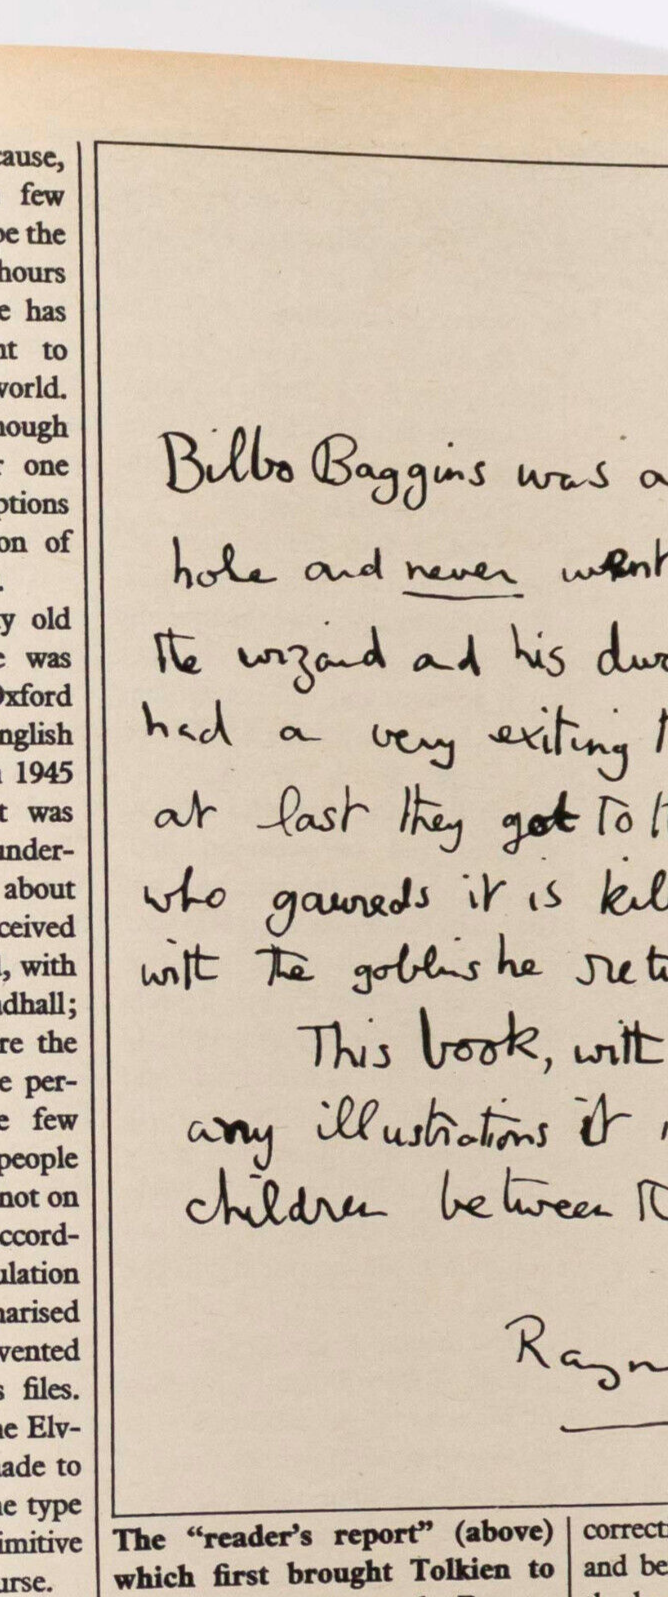 cause,
few
be the
hours
e has
nt to
world.
hough
r one
ptions
on of
y old
e was
Oxford
nglish
1945
t was
under-
about
ceived
, with
dhall;
re the
e per-
e few
people
not on
ccord-
ulation
narised
vented
s files.
he Elv-
ade to
he type
imitive
urse.
Bilbo Baggins was a
hole and never went
the wizard and his dwa
had a very exiting
at last they got to
who gaureds it is kil
with the goblins he retu
This book, with
any illustrations it
children between
Rayn
The “reader’s report” (above)
which first brought Tolkien to
correcti
and be